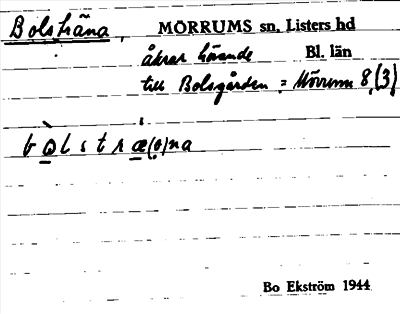 Bolsträna, MÖRRUMS sn. Listers hd
åkrar hörande Bl. län
till Bolsgården = Mörrum 8 (3)
bòlstræ(o)na
Bo Ekström 1944